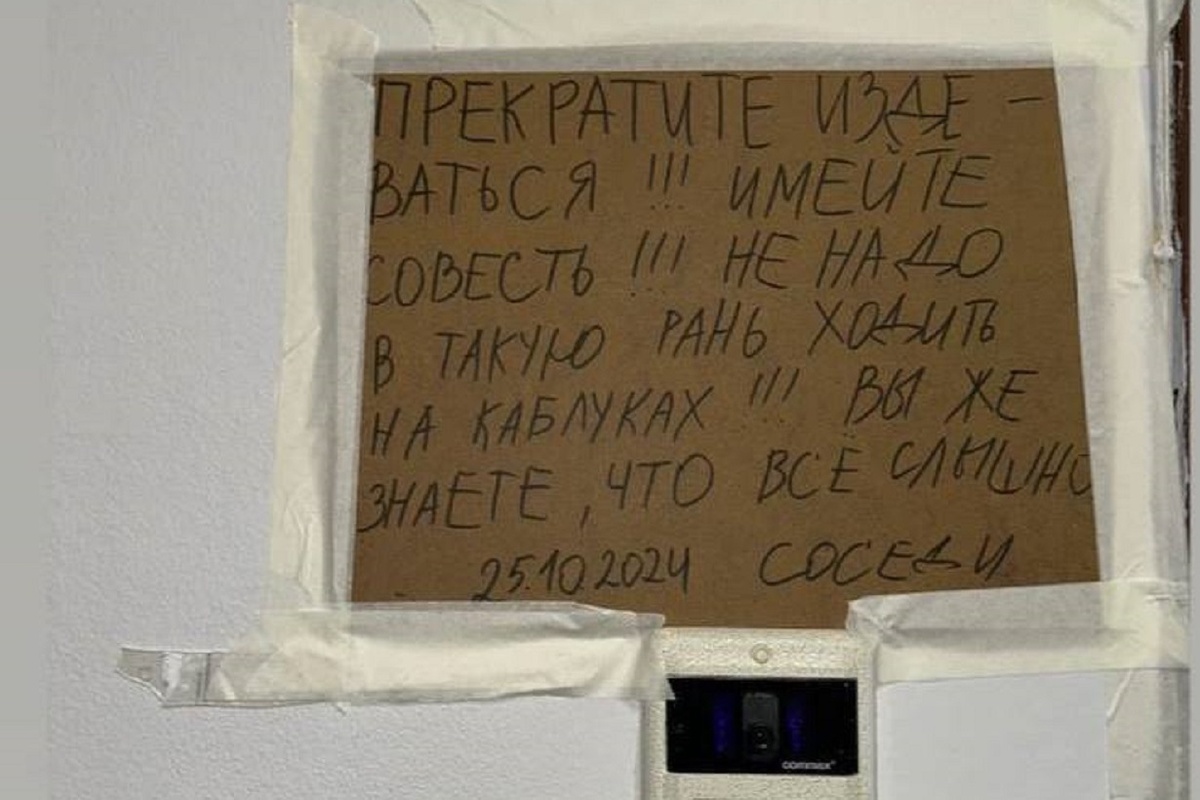 ПРЕКРАТИТЕ ИЗДЕ -
ВАТЬСЯ !!! ИМЕЙТЕ
СОВЕСТЬ !!! НЕ НАДО
В ТАКУЮ РАНЬ ХОДИТЬ
НА КАБЛУКАХ !!! ВЫ ЖЕ
ЗНАЕТЕ, ЧТО ВСЁ СЛЫШНО
25.10.2024 СОСЕДИ
commax